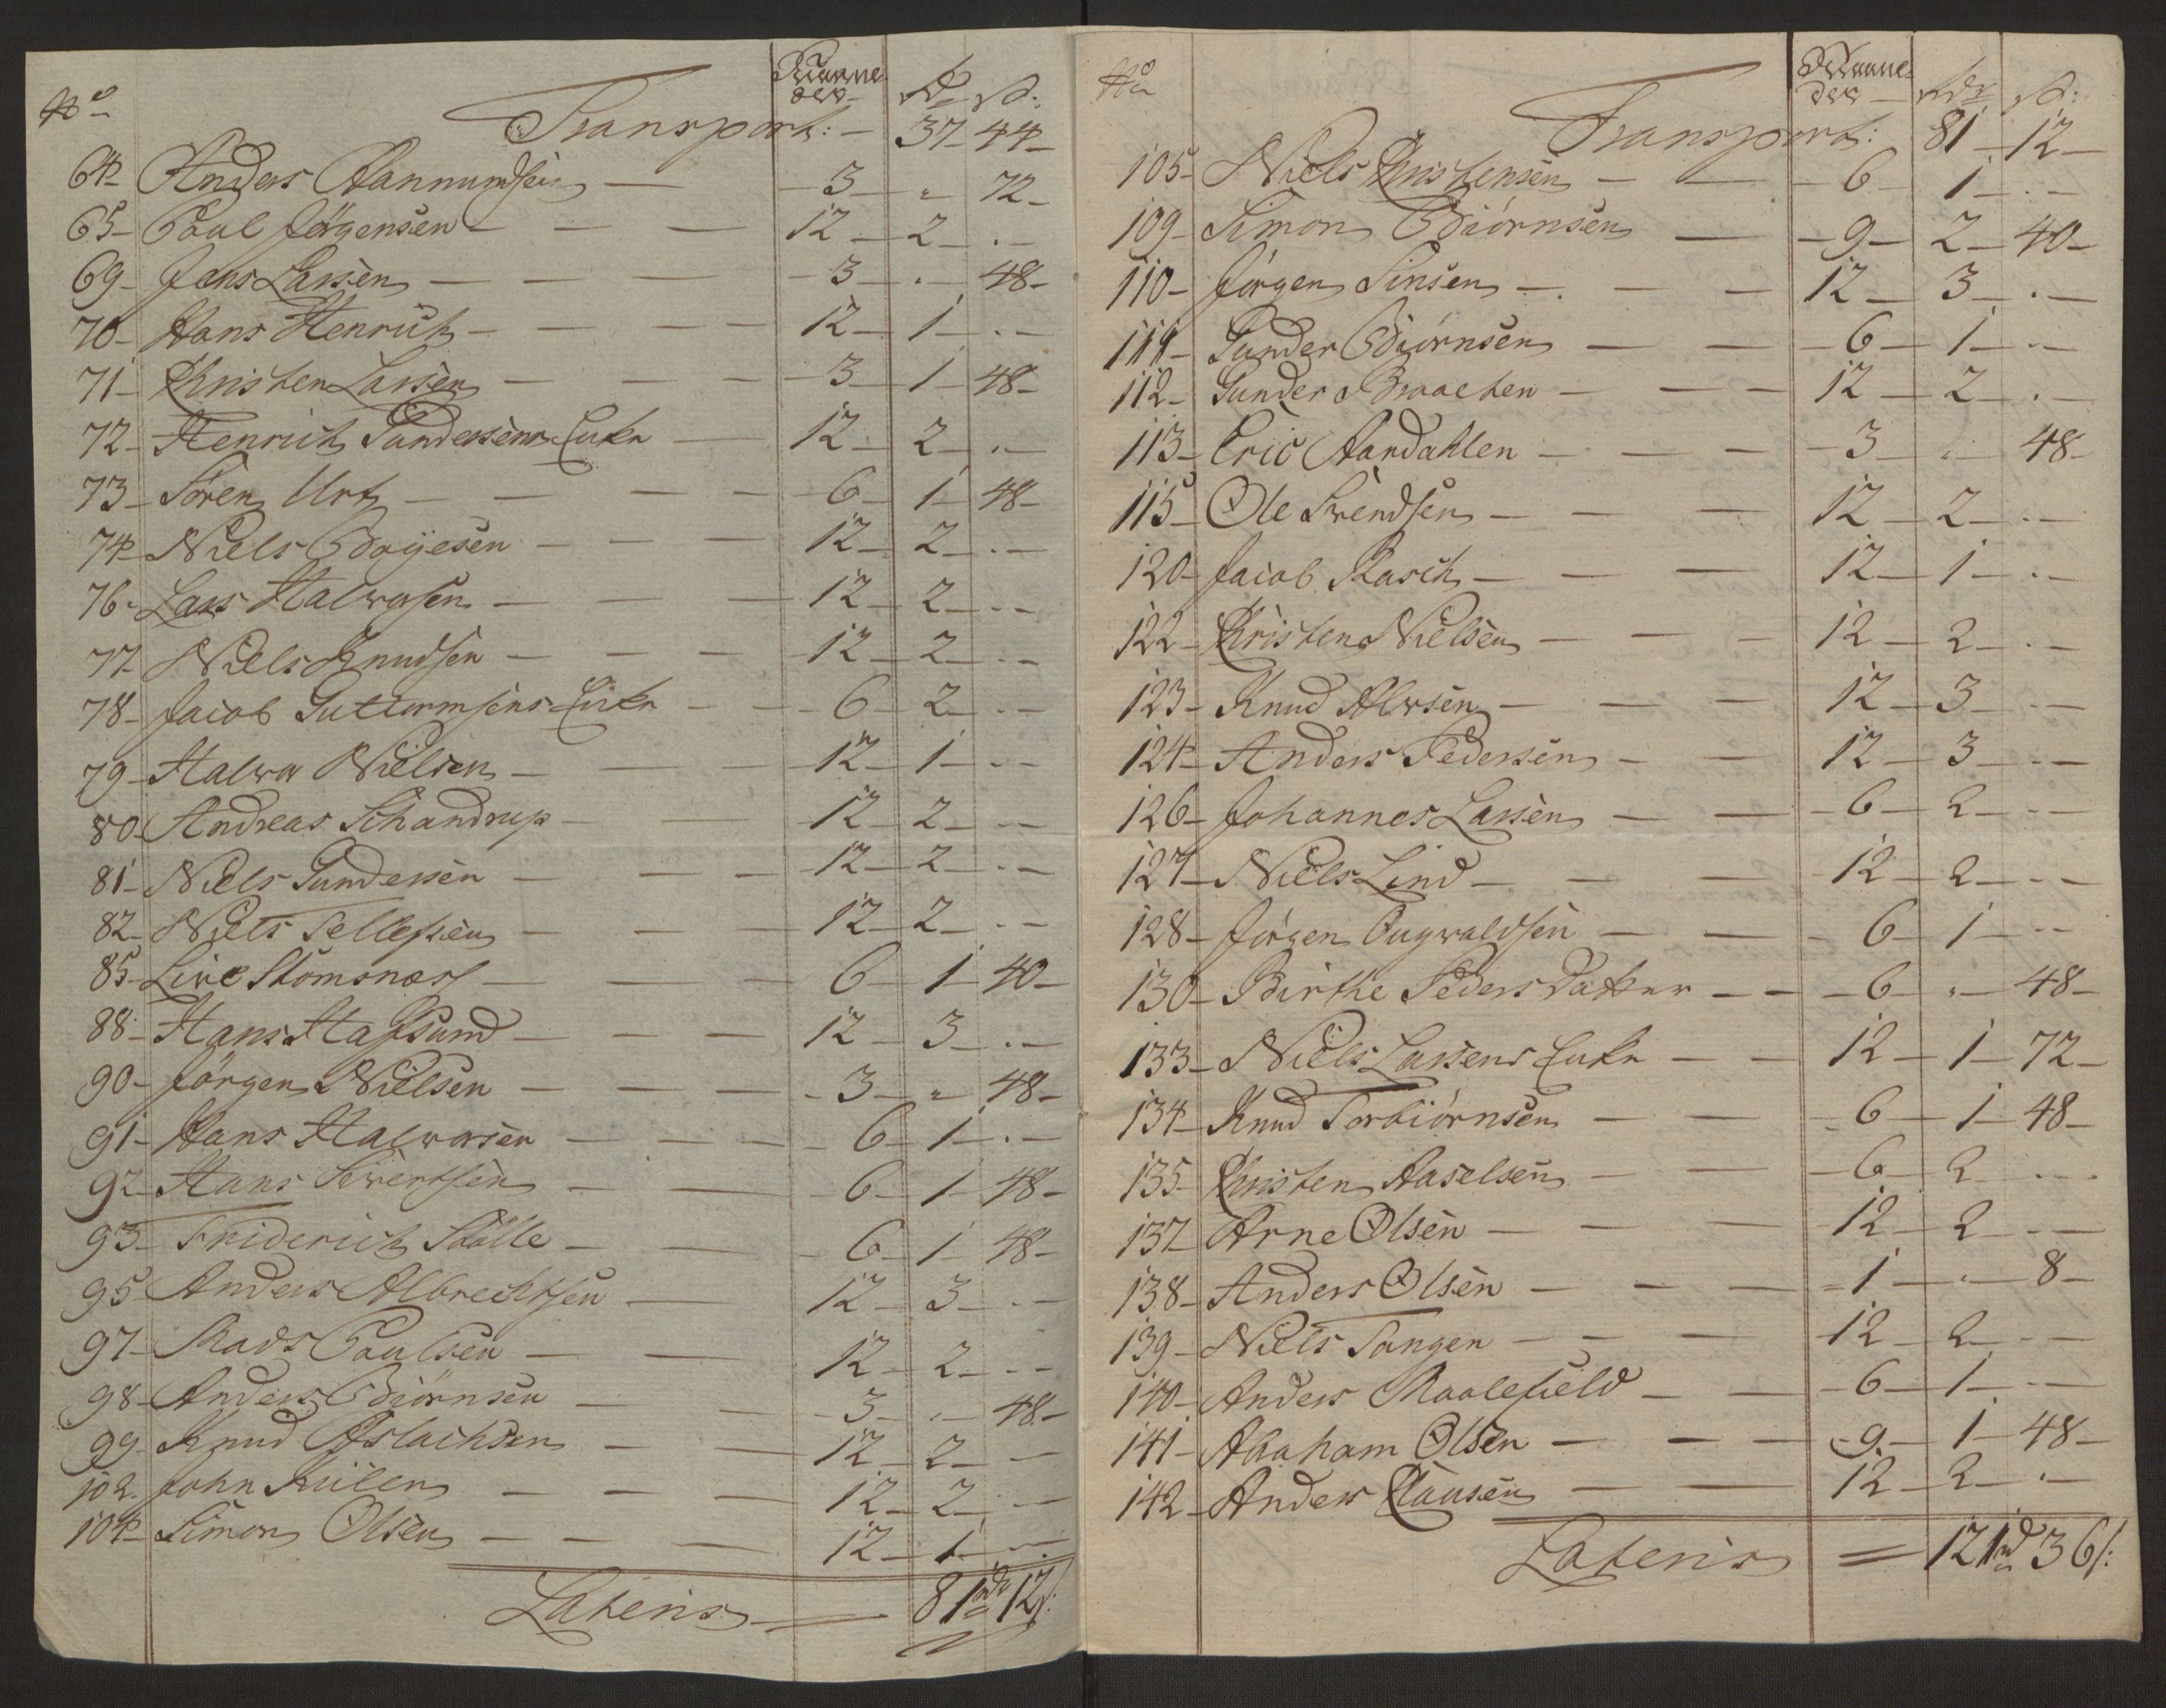 No
Maane
der
Rd s:
Transport: — 37 — 44 —
64 — Anders Aannumdsen — 3 — " — 72 —
65 — Poul Jörgensen — 12 — 2 — . —
69 — Jens Lassen — 3 — . — 48 —
70 — Hans Henrich — 12 — 1 — . —
71 — Christen Lassen — 3 — 1 — 48 —
72 — Henrich Gundersens Enke — 12 — 2 — . —
73 — Sören Urt — 6 — 1 — 48 —
74 — Niels Boyesen — 12 — 2 — . —
76 — Lars Halvorsen — 12 — 2 — . —
77 — Niels Knudsen — 12 — 2 — . —
78 — Jacob Guttormsens Enke — 6 — 2 — . —
79 — Halvor Nielsen — 12 — 1 — . —
80 — Andreas Schandrup — 12 — 2 — . —
81 — Niels Gundersen — 12 — 2 — . —
82 — Niels Tellefsen — 12 — 2 — . —
85 — Live Stomsnæs — 6 — 1 — 40 —
88 — Hans Hafsund — 12 — 3 — . —
90 — Jörgen Nielsen — 3 — " — 48 —
91 — Hans Halvorsen — 6 — 1 — . —
92 — Hans Sivertsen — 6 — 1 — 48 —
93 — Friderich Stölle — 6 — 1 — 48 —
95 — Anders Albrechtsen — 12 — 3 — . —
97 — Mads Poulsen — 12 — 2 — . —
98 — Anders Biörnsen — 3 — . — 48 —
99 — Knud Aslachsen — 12 — 2 — . —
102 — John — 12 — 2 — . —
104 — Simon Olsen — 12 — 1 — . —
Lateris — 81 rd 12 s:
No
Maane
der
rdr s:
Transport: 81 — 12 —
105 — Niels Christensen — 6 — 1 — . —
109 — Simon Biörnsen — 9 — 2 — 40 —
110 — Jörgen Sinsen — 12 — 3 — . —
111 — Gunder Biörnsen — 6 — 1 — . —
112 — Gunder Braathen — 12 — 2 — . —
113 — Eric Aardahlen — 3 — . — 48 —
115 — Ole Svendsen — 12 — 2 — . —
120 — Jacob Rasch — 12 — 1 — . —
122 — Christen Nielsen — 12 — 2 — . —
123 — Knud Alvsen — 12 — 3 — . —
124 — Anders Pedersen — 12 — 3 — . —
126 — Johannes Lassen — 6 — 2 — . —
127 — Niels Lind — 12 — 2 — . —
128 — Jörgen Ougvaldsen — 6 — 1 — . —
130 — Birthe Peders Datter — 6 — " — 48 —
133 — Niels Lassens Enke — 12 — 1 — 72 —
134 — Knud Torbiörnsen — 6 — 1 — 48 —
135 — Christen Aaselsen — 6 — 2 — . —
137 — Arne Olsen — 12 — 2 — . —
138 — Anders Olsen — 1 — . — 8 —
139 — Niels Tangen — 12 — 2 — . —
140 — Anders Maalefield — 6 — 1 — . —
141 — Abraham Olsen — 9 — 1 — 48 —
142 — Anders Clausen — 12 — 2 — . —
Lateris = 121 rd 36 s: